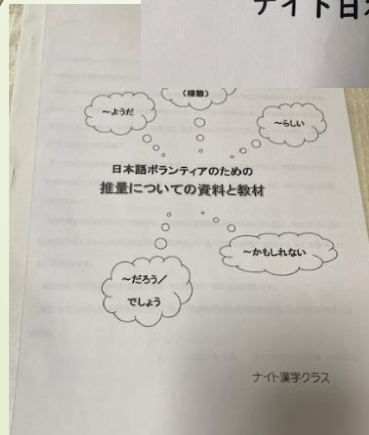 ナイト日
(様態)
～ようだ
～らしい
日本語ボランティアのための
推量についての資料と教材
～かもしれない
～だろう/
でしょう
ナイト漢字クラス